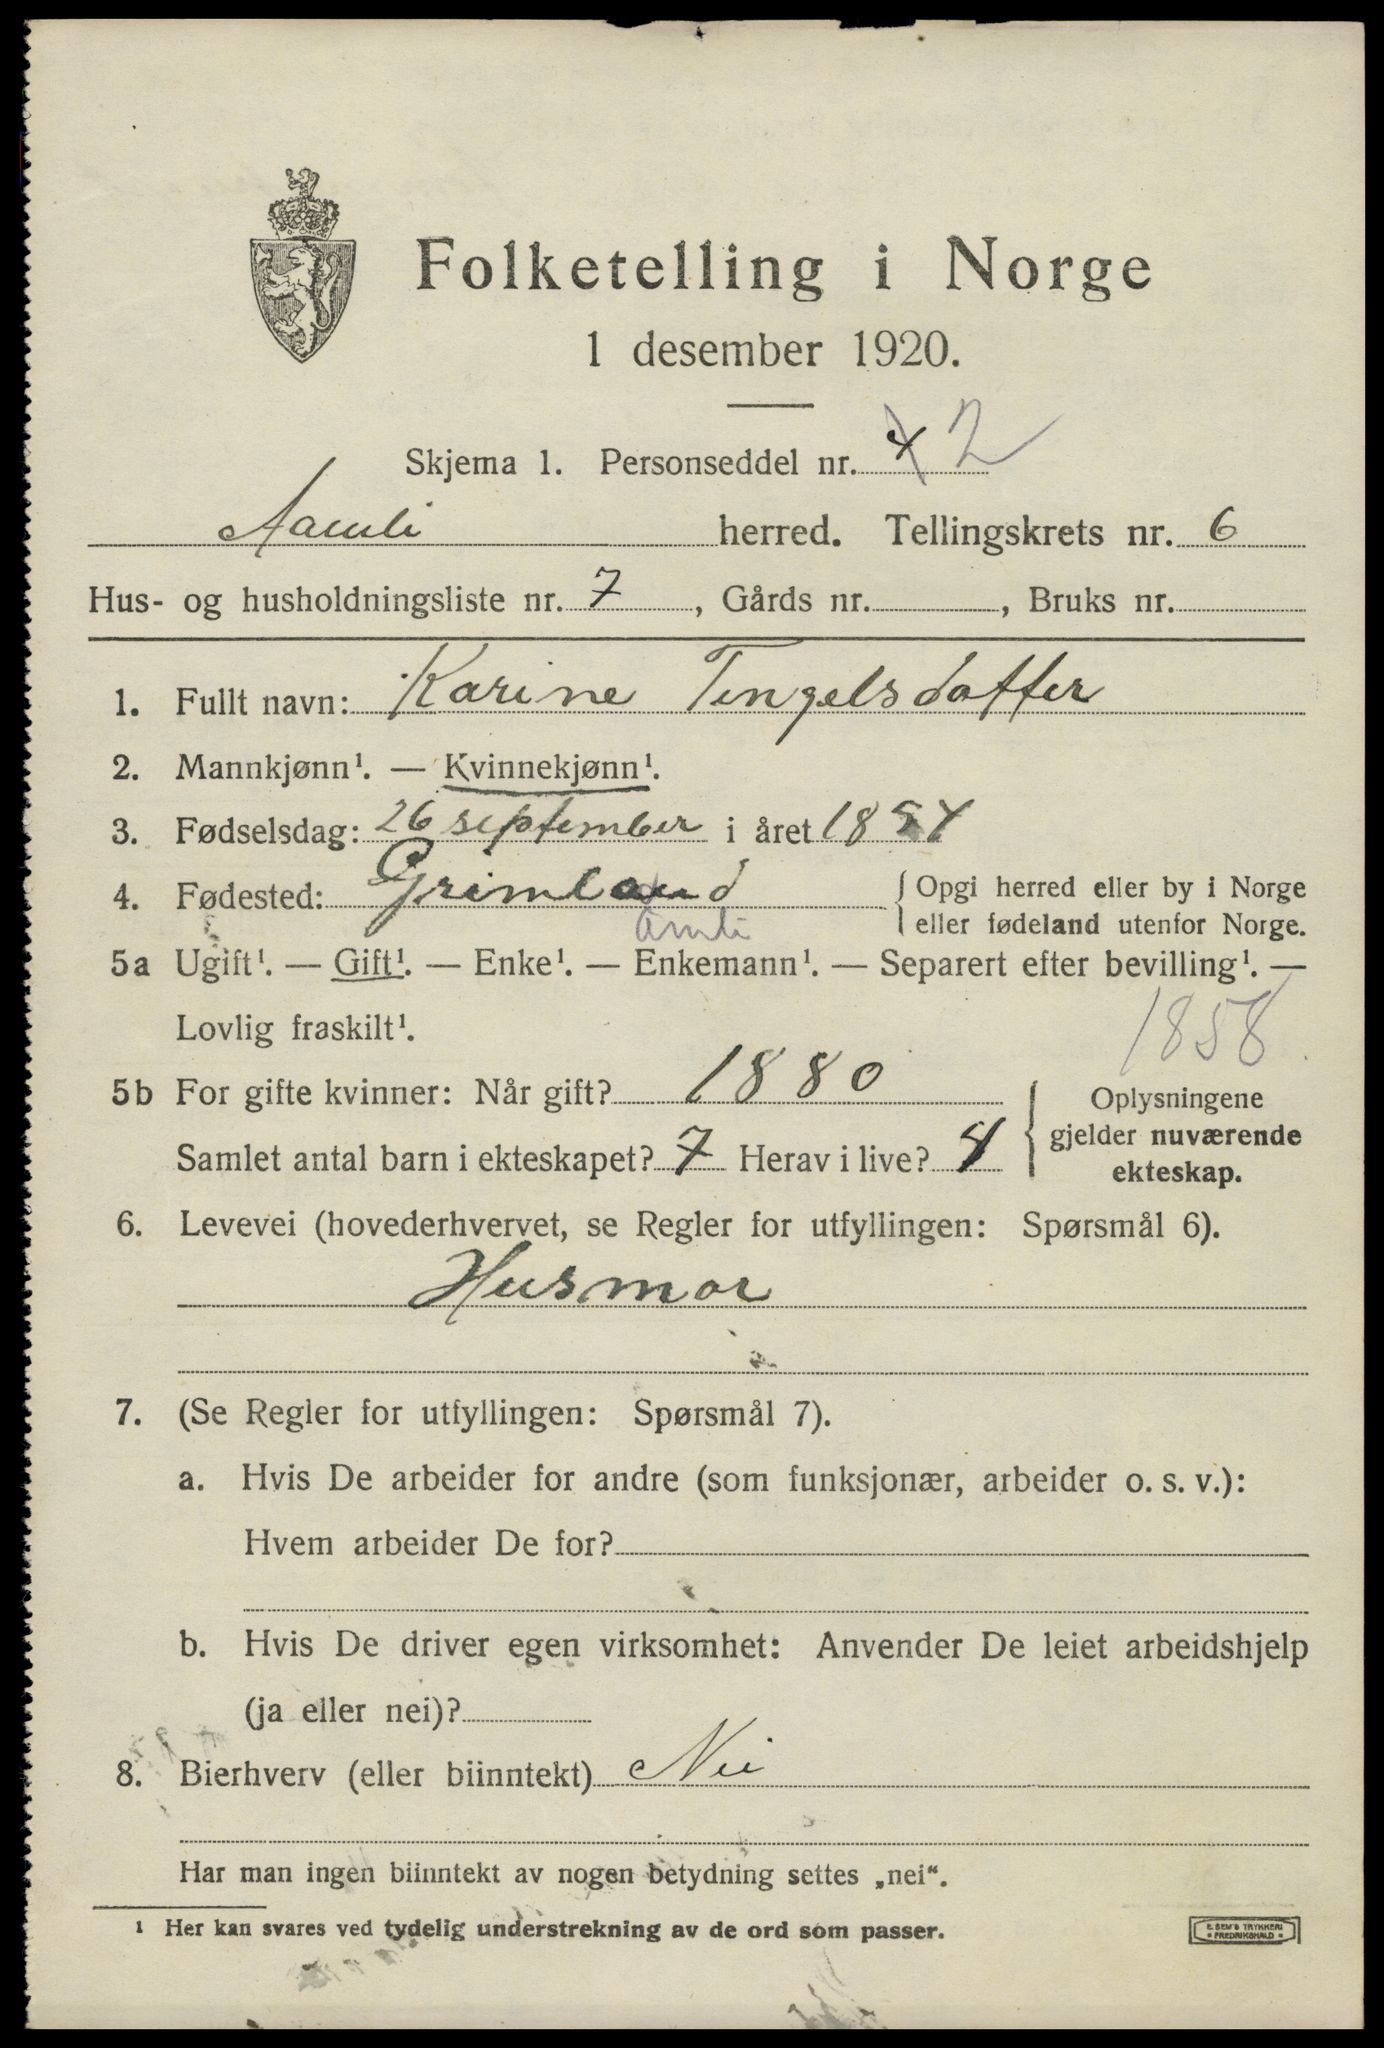 Folketelling i Norge
1 desember 1920.
Skjema 1. Personseddel nr. 4 2
Aamli herred. Tellingskrets nr. 6
Hus- og husholdningsliste nr. 7, Gårds nr. , Bruks nr.
1. Fullt navn: Karine Tengelsdatter
2. Mannkjønn¹. — Kvinnekjønn¹.
3. Fødselsdag: 26 september i året 1854
4. Fødested: Grimland { Opgi herred eller by i Norge
eller fødeland utenfor Norge.
Amli
5a Ugift¹. — Gift¹. — Enke¹. — Enkemann¹. — Separert efter bevilling¹. —
Lovlig fraskilt¹.
1858
5b For gifte kvinner: Når gift? 1880
Samlet antal barn i ekteskapet? 7 Herav i live? 4
{ Oplysningene
gjelder nuværende
ekteskap.
6. Levevei (hovederhvervet, se Regler for utfyllingen: Spørsmål 6).
Husmor
7. (Se Regler for utfyllingen: Spørsmål 7).
a. Hvis De arbeider for andre (som funksjonær, arbeider o. s. v.):
Hvem arbeider De for?
b. Hvis De driver egen virksomhet: Anvender De leiet arbeidshjelp
(ja eller nei)?
8. Bierhverv (eller biinntekt) Nei
Har man ingen biinntekt av nogen betydning settes „nei“.
¹ Her kan svares ved tydelig understrekning av de ord som passer.
E. SEM'S TRYKKERI
FREDRIKSHALD